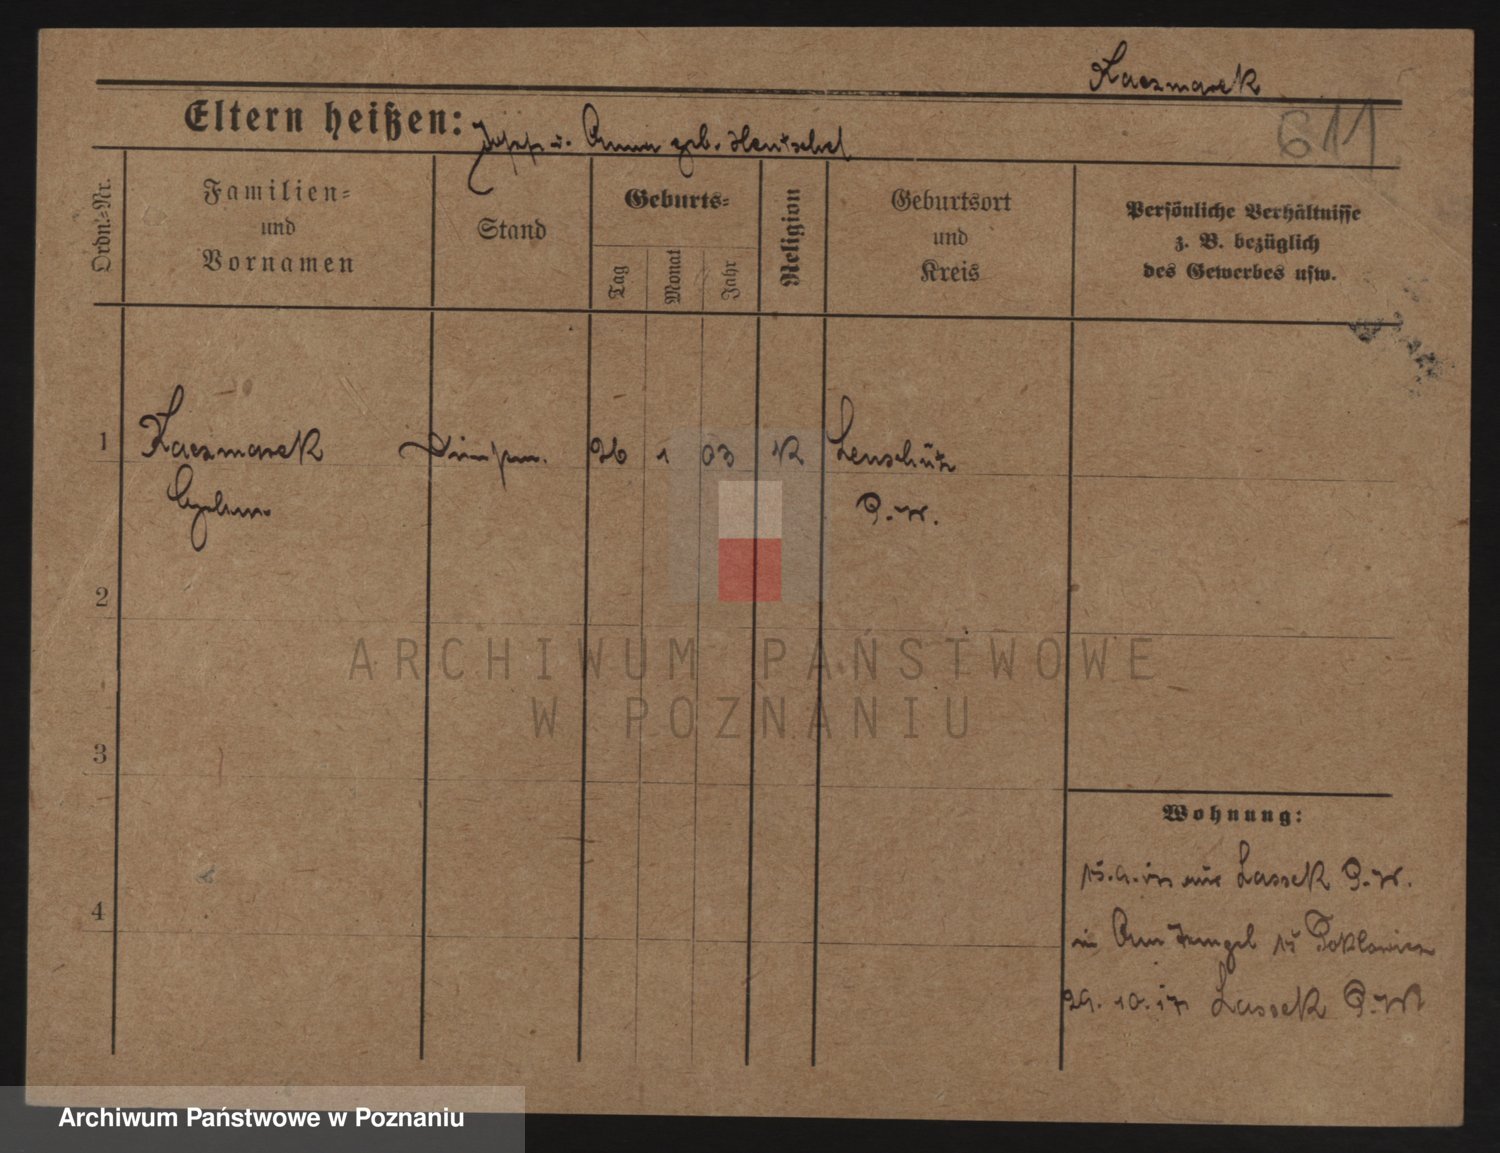 Kaczmarek
611
Eltern heißen: Josef u. Anna geb. Hentschel
Ordn.-Nr.
Familien-
und
Vornamen
Stand
Geburts-
Tag
Monat
Jahr
Religion
Geburtsort
und
Kreis
Persönliche Verhältnisse
z. B. bezüglich
des Gewerbes usw.
1 Kaczmarek 26 1 03 K Lenschütz
P.W.
2
3
4
Wohnung:
aus Lassek P.W.
in
29. 10. 17 Lassek P.W.
ARCHIWUM PAŃSTWOWE
W POZNANIU
Archiwum Państwowe w Poznaniu